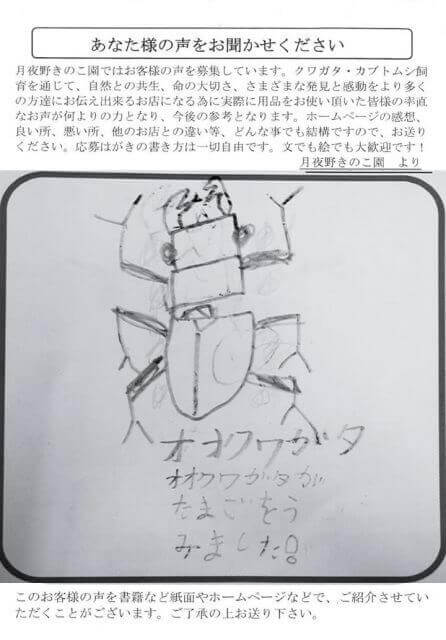 あなた様の声をお聞かせください
月夜野きのこ園ではお客様の声を募集しています。クワガタ・カブトムシ飼
育を通じて、自然との共生、命の大切さ、さまざまな発見と感動をより多く
の方達にお伝え出来るお店になる為に実際に用品をお使い頂いた皆様の率直
なお声が何よりの力となり、今後の参考となります。ホームページの感想、
良い所、悪い所、他のお店との違い等、どんな事でも結構ですので、お送り
ください。応募はがきの書き方は一切自由です。文でも絵でも大歓迎です！
月夜野きのこ園　より
オオクワガタ
オオクワガタが
たまごをう
みました!
このお客様の声を書籍など紙面やホームページなどで、ご紹介させてい
ただくことがございます。ご了承の上お送り下さい。